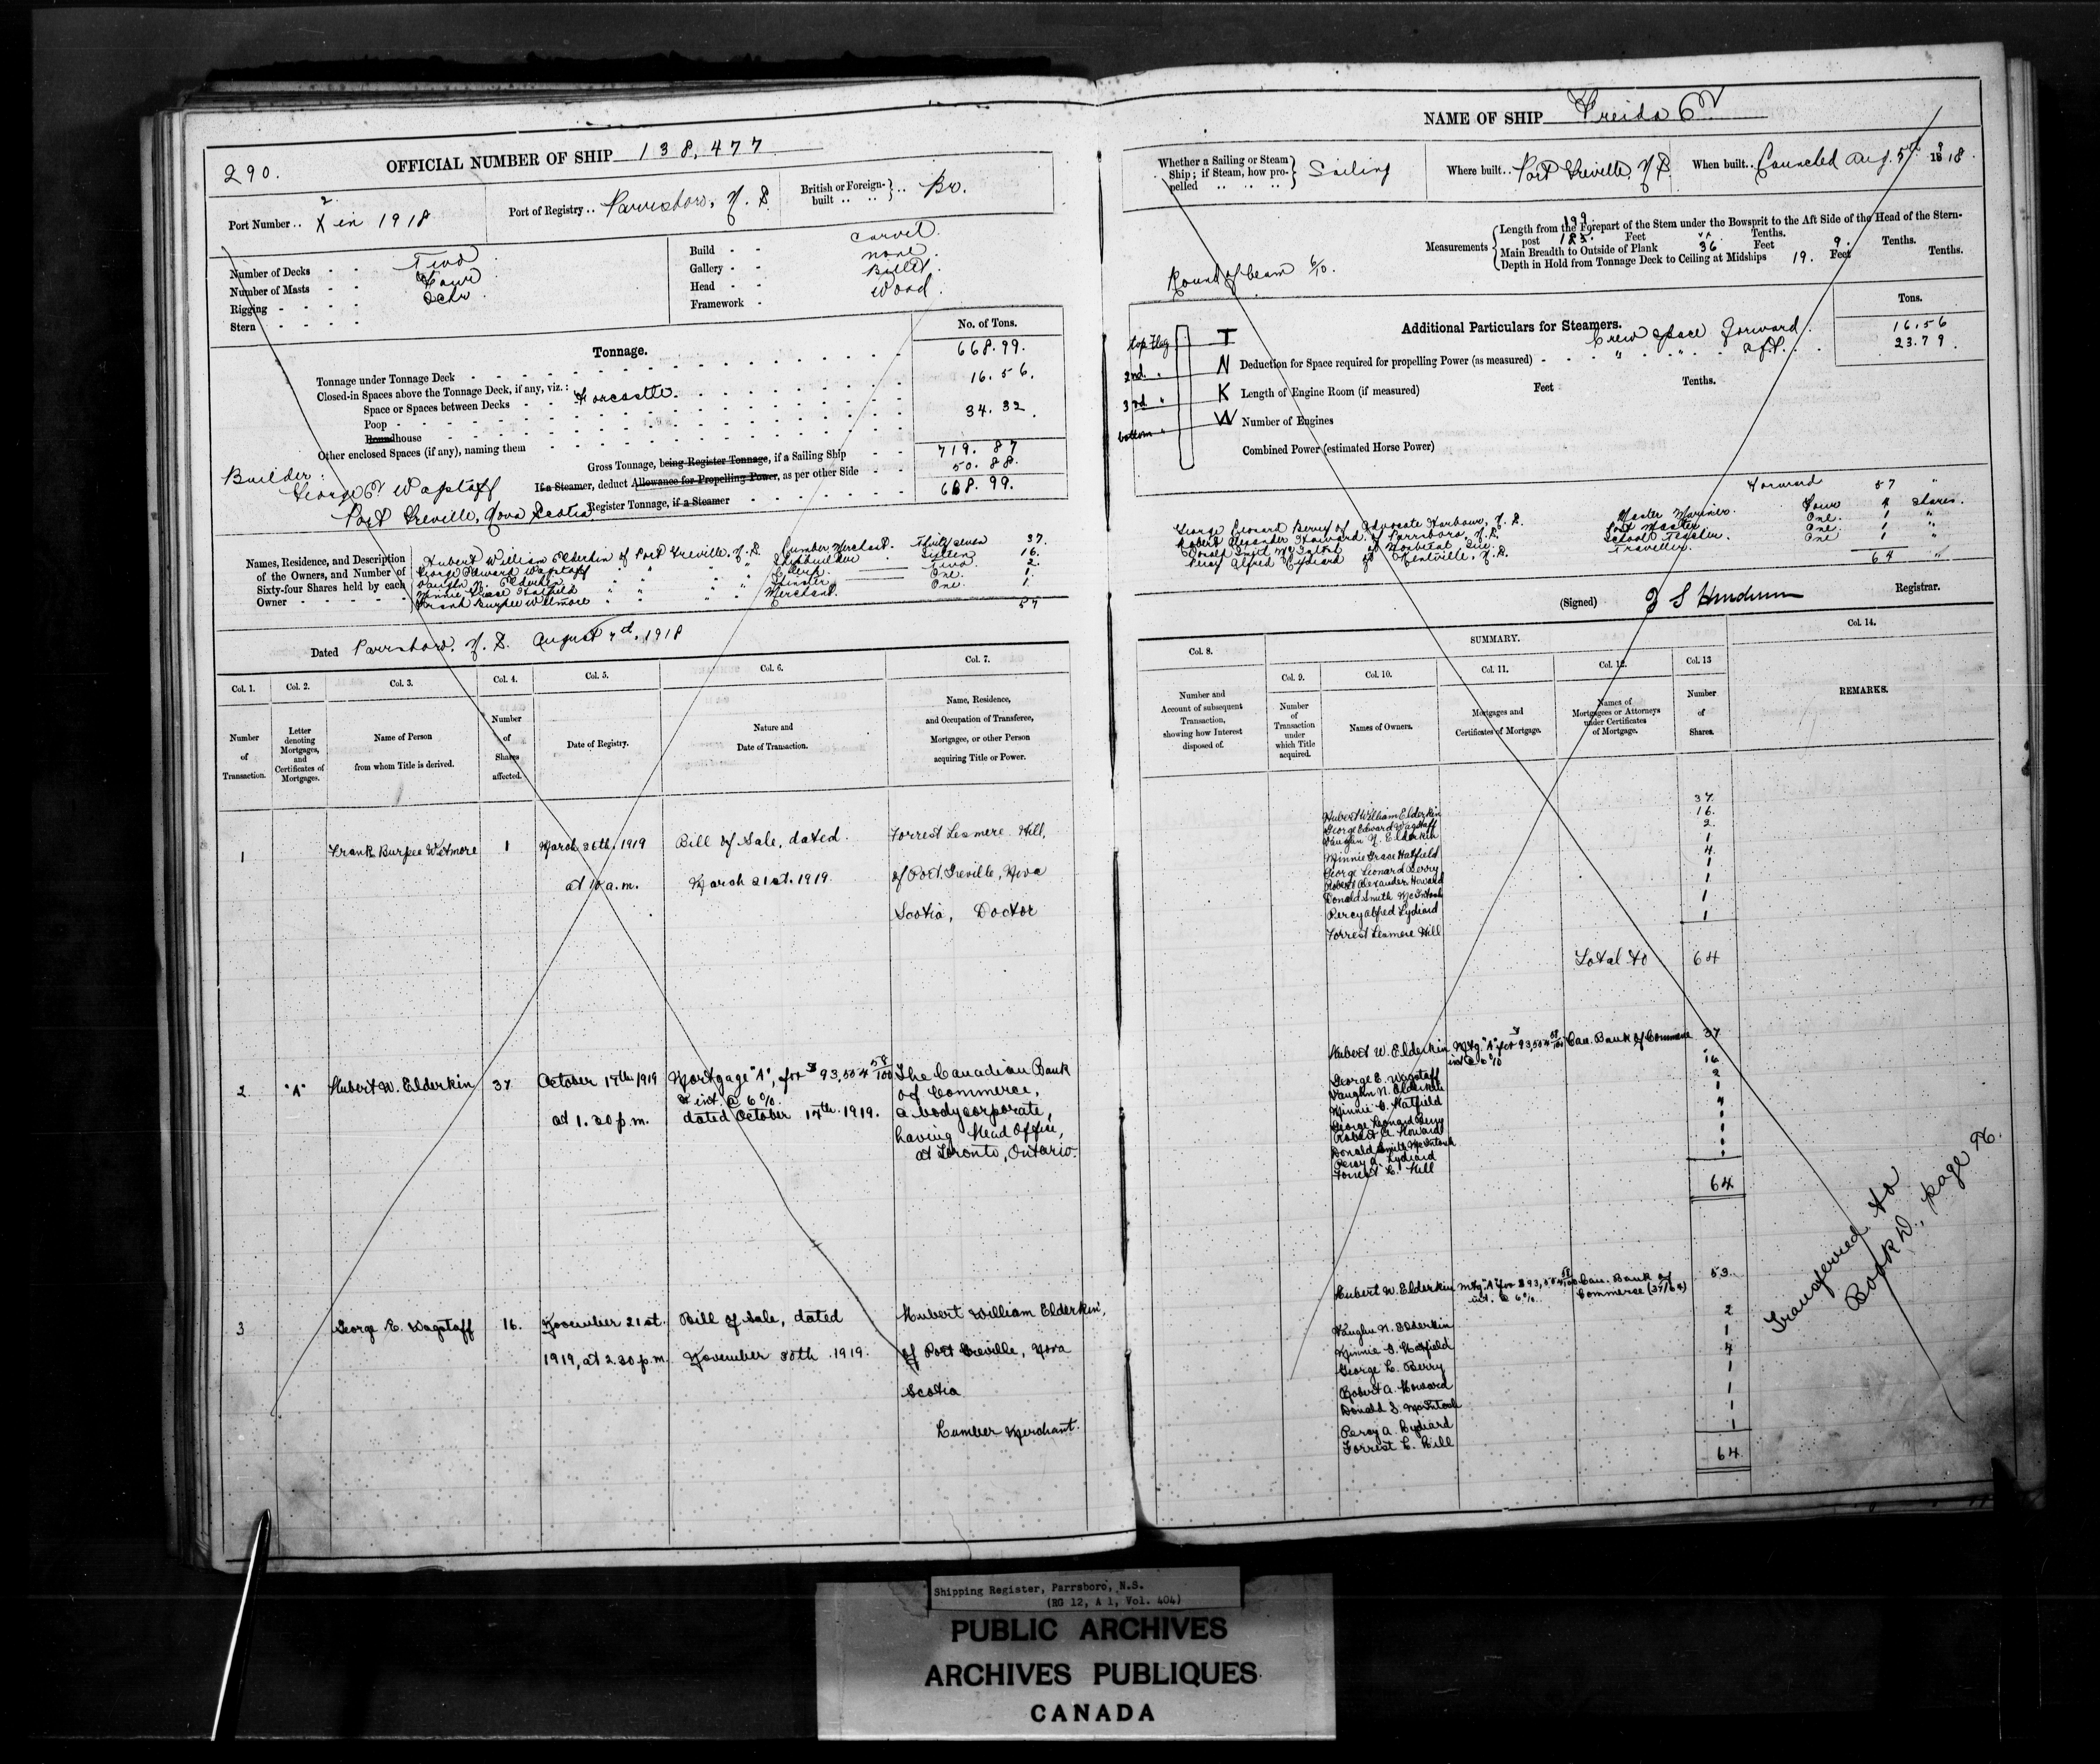 290.
OFFICIAL NUMBER OF SHIP 138,477
Port Number .. 2 X in 1918
Port of Registry .. Parrsboro, N.S.
British or Foreign-built .. Br.
Number of Decks - - Two
Number of Masts - - Four
Rigging - - - - Schr.
Stern - - - -
Build - - Carvel.
Gallery - - None.
Head - - Billet.
Framework - Wood.
Tonnage.
No. of Tons.
Tonnage under Tonnage Deck 668.99.
Closed-in Spaces above the Tonnage Deck, if any, viz.:
Space or Spaces between Decks Forcastle. 16.56.
Poop
Roundhouse 34.32.
Other enclosed Spaces (if any), naming them
Gross Tonnage, being Register Tonnage, if a Sailing Ship 719.87
If a Steamer, deduct Allowance for Propelling Power, as per other Side 50.88.
Register Tonnage, if a Steamer 668.99.
Builder:
George E Wagstaff
Port Greville, Nova Scotia.
Names, Residence, and Description of the Owners, and Number of Sixty-four Shares held by each Owner
Hubert William Elderkin of Port Greville, N.S. Lumber Merchant. Thirty seven 37.
George Edward Wagstaff " " " Shipbuilder Sixteen 16.
Vaughn N. Elderkin " " " Clerk Two. 2.
Minnie Grace Hatfield " " " Spinster One. 1.
Frank Burpee Wetmore " " " Merchant. One. 1.
57
Dated Parrsboro, N.S. August 7th, 1918
Col. 1. Col. 2. Col. 3. Col. 4. Col. 5. Col. 6. Col. 7.
Number of Transaction.
Letter denoting Mortgages, and Certificates of Mortgages.
Name of Person from whom Title is derived.
Number of Shares affected.
Date of Registry.
Nature and Date of Transaction.
Name, Residence, and Occupation of Transferee, Mortgagee, or other Person acquiring Title or Power.
1 Frank Burpee Wetmore 1 March 26th, 1919 Bill of Sale, dated Forrest Lesmere Hill,
at 10 a.m. March 21st. 1919. of Port Greville, Nova
Scotia, Doctor
2 "A" Hubert W. Elderkin 37 October 17th 1919 Mortgage "A", for $93,504 58/100 The Canadian Bank
& int. @ 6%. of Commerce,
at 1.30 p.m. dated October 17th. 1919. a body corporate,
having Head Office,
at Toronto, Ontario.
3 George E. Wagstaff 16. November 21st. Bill of Sale, dated Hubert William Elderkin,
1919, at 2.30 p.m. November 20th. 1919. of Port Greville, Nova
Scotia
Lumber Merchant.
NAME OF SHIP Freida E.
Whether a Sailing or Steam Ship; if Steam, how propelled Sailing
Where built .. Port Greville, N.S.
When built .. Launched Aug. 5th 1918.
Measurements
Length from the Forepart of the Stem under the Bowsprit to the Aft Side of the Head of the Sternpost 185. Feet Tenths.
Main Breadth to Outside of Plank 36 Feet 9. Tenths.
Depth in Hold from Tonnage Deck to Ceiling at Midships 19. Feet Tenths.
Round of beam 6/10.
Additional Particulars for Steamers.
Tons.
Crew space forward. 16.56
" " aft. 23.79.
top Flag T
2nd. " N
3rd " K
bottom " W
Deduction for Space required for propelling Power (as measured)
Length of Engine Room (if measured) Feet Tenths.
Number of Engines
Combined Power (estimated Horse Power)
Forward 57 "
George Leonard Berry of Advocate Harbour, N.S. Master Mariner. Four 4 shares.
Robert Alexander Howard, of Parrsboro, N.S. Post Master One. 1 "
Donald Smith McIntosh School Teacher. One. 1 "
Percy Alfred Lydiard of Kentville, N.S. Traveller. One 1 "
64 "
(Signed) Registrar.
Col. 8. SUMMARY. Col. 14.
Col. 9. Col. 10. Col. 11. Col. 12. Col. 13
Number and Account of subsequent Transaction, showing how Interest disposed of.
Number of Transaction under which Title acquired.
Names of Owners.
Mortgages and Certificates of Mortgage.
Names of Mortgagees or Attorneys under Certificates of Mortgage.
Number of Shares.
REMARKS.
Hubert William Elderkin 37.
George Edward Wagstaff 16.
Vaughn N. Elderkin 2.
Minnie Grace Hatfield 1
George Leonard Berry 4.
Robert Alexander Howard 1
Donald Smith McIntosh 1
Percy Alfred Lydiard 1
Forrest Lesmere Hill 1
Total to 64
Hubert W. Elderkin Mtg. "A" for $93,504 58/100 Can. Bank of Commerce 37
int @ 6%
George E. Wagstaff 16
Vaughn N. Elderkin 2
Minnie G. Hatfield 1
George Leonard Berry 4
Robert A. Howard 1
Donald Smith McIntosh 1
Percy A. Lydiard 1
Forrest L. Hill 1
64
Hubert W. Elderkin Mtg. "A" for $93,504 58/100 Can. Bank of 53.
int. @ 6%. Commerce (37/64)
Vaughn N. Elderkin 2
Minnie G. Hatfield 1
George L. Berry 4
Robert A. Howard 1
Donald S. McIntosh 1
Percy A. Lydiard 1
Forrest L. Hill 1
64.
Transferred to
Book D., page 76.
Shipping Register, Parrsboro, N.S.
(RG 12, A 1, Vol. 404)
PUBLIC ARCHIVES
ARCHIVES PUBLIQUES
CANADA